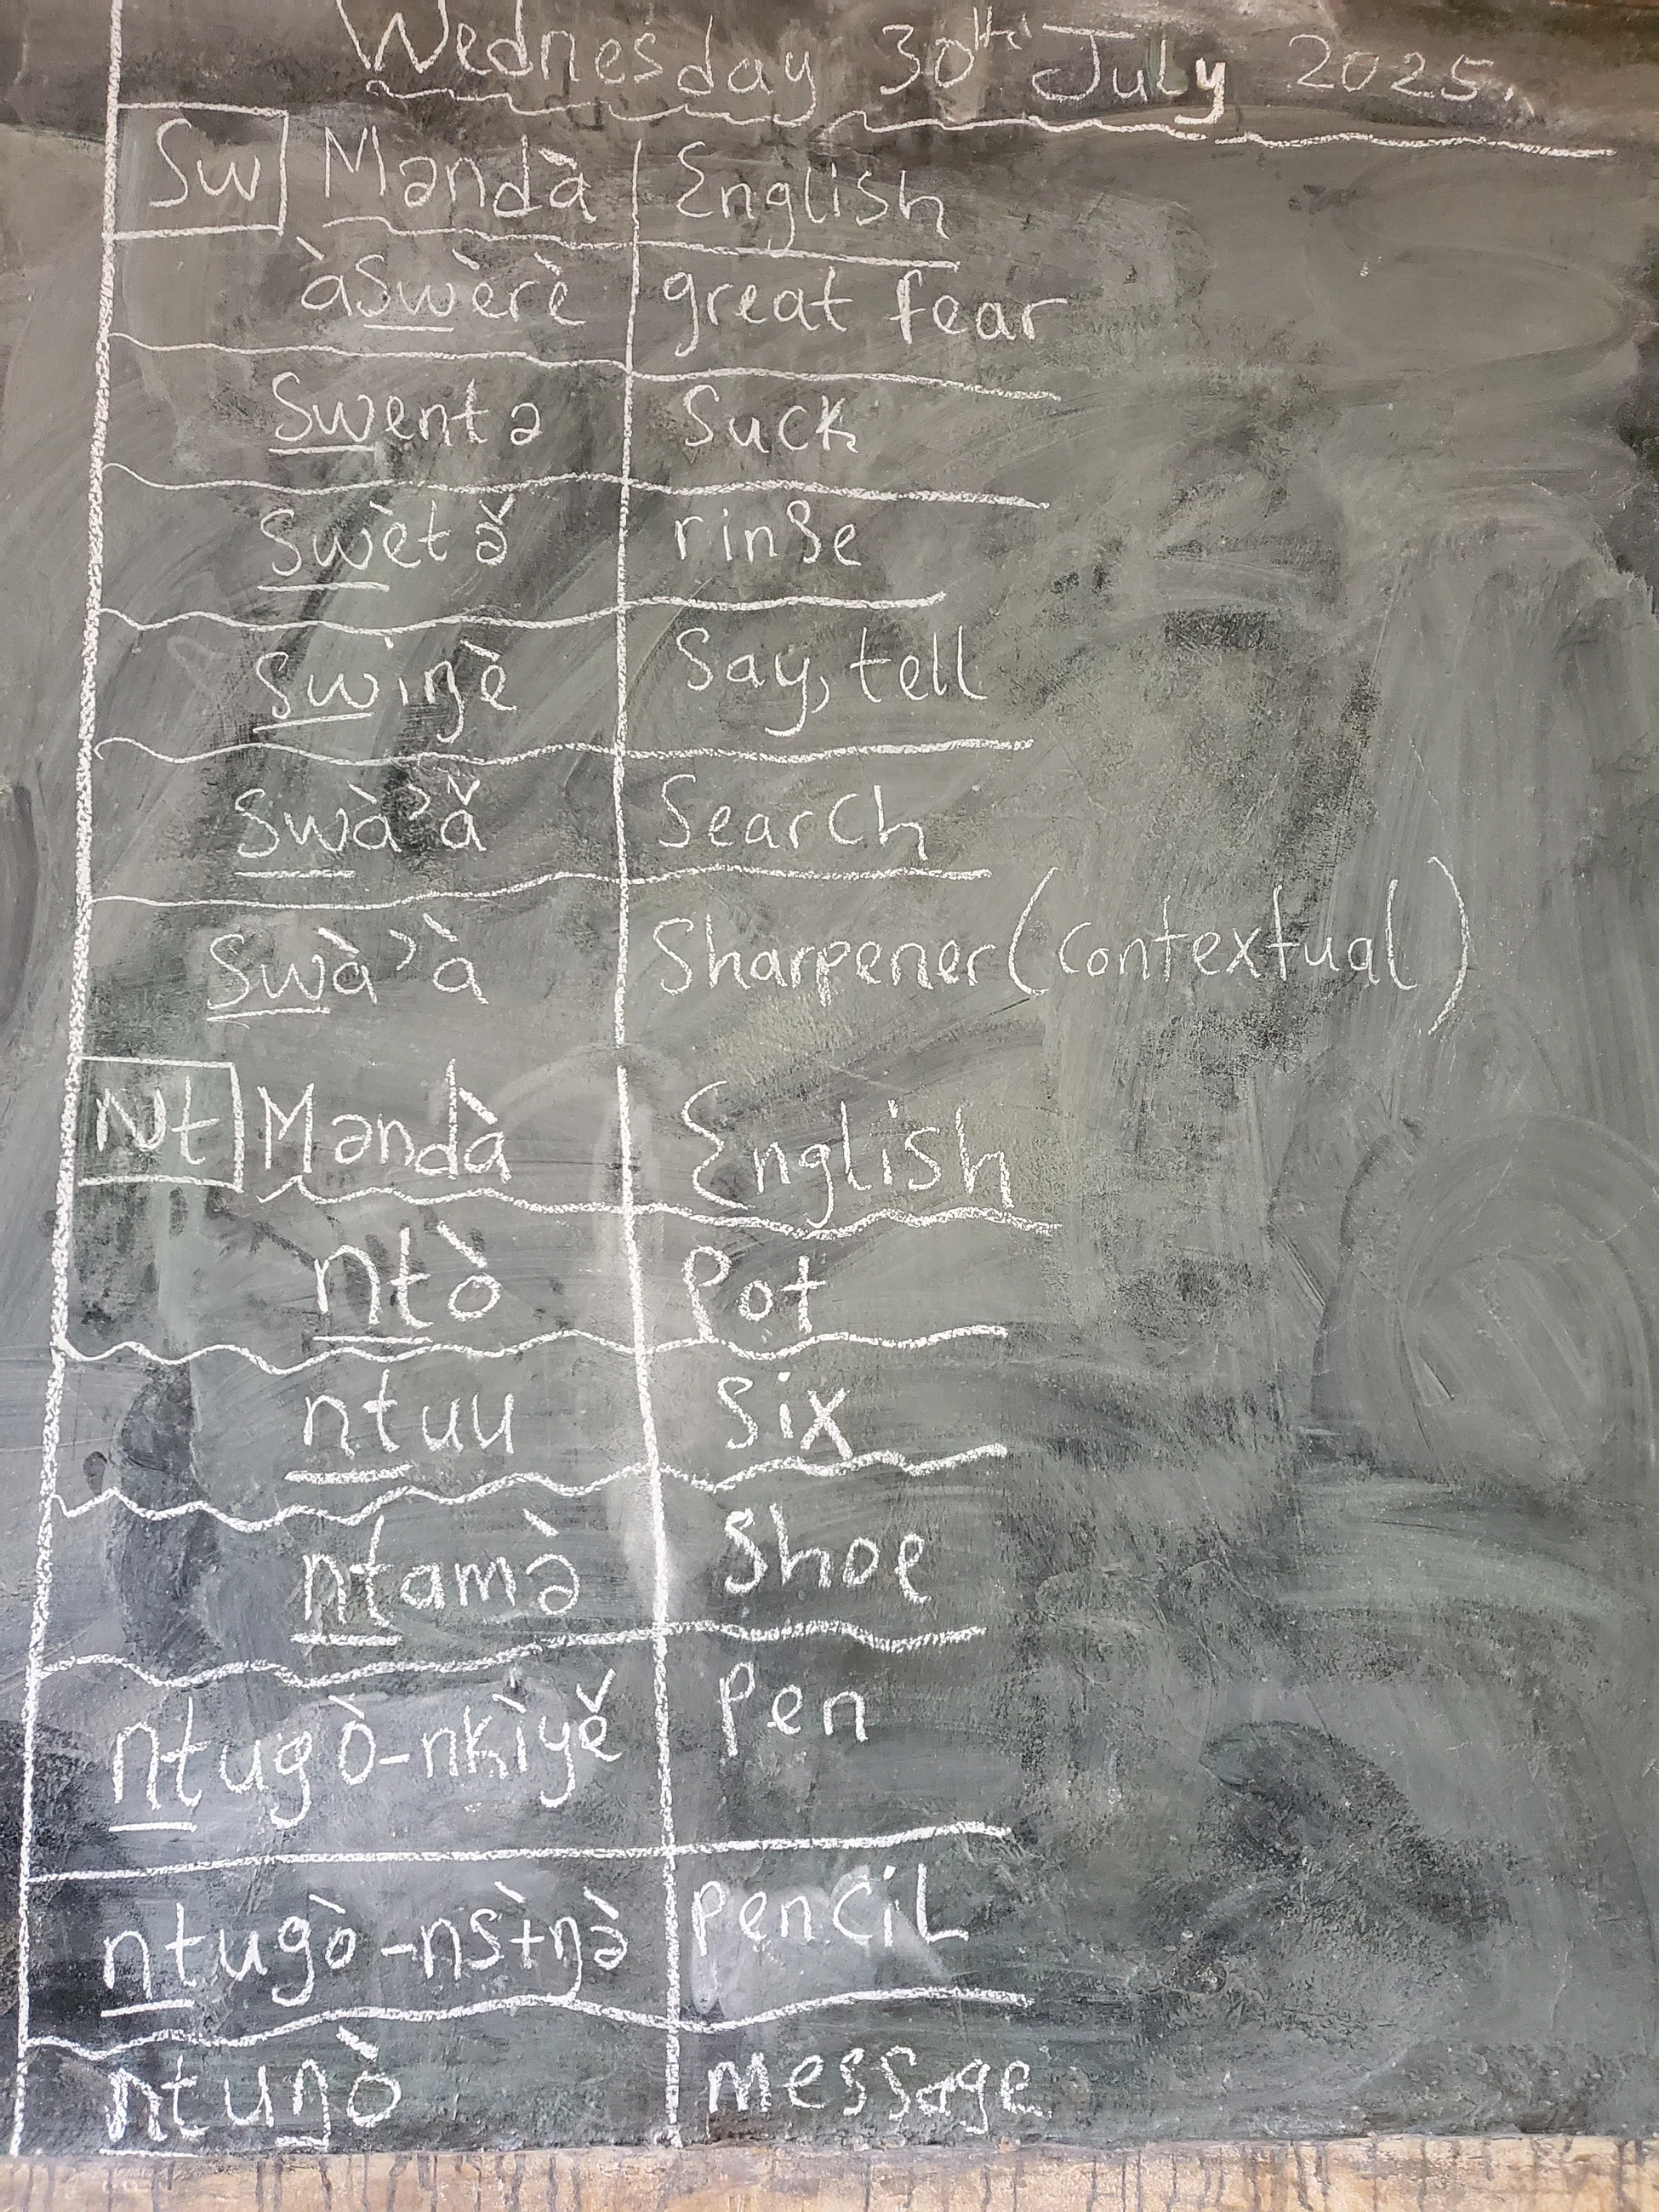 Wednesday 30th July 2025.
Sw Məndà English
àswèrè great fear
Swentə Suck
Swètə̌ rinse
swiŋè Say, tell
Swà'ǎ Search
Swà'à Sharpener (contextual)
Nt Məndà English
ntò Pot
ntuu Six
ntamə̀ Shoe
ntugò-nkìyě Pen
ntugò-nsɨ̀ŋə̀ penciL
ntuŋò message